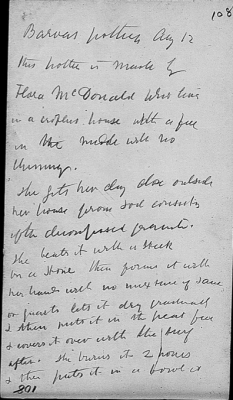 108
Barvas pottery Aug 12
This pottery is made by
Flora McDonald who live
in a crofters house with a fire
in the middle with no
chimney.
She gets her clay close outside
her house from sod consists
often decomposed granite.
She beats it with a stick
on a stone then forms it with
her hands with no mixture of sand
or quartz lets it dry gradually
& then puts it in the peat fire
& covers it over with the
after. She burns it 2 hours
& then puts it in a bowl of
801